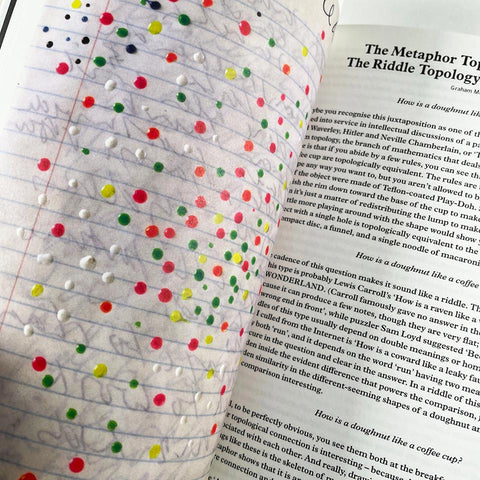 The Metaphor Top
The Riddle Topology
Graham M
How is a doughnut
be you recognise this juxtaposition as one of th
ed into service in intellectual discussions of a pa
Waverley, Hitler and Neville Chamberlain, or 'T
m topology, the branch of mathematics that deals
is that if you abide by a few rules, you can see th
e cup are topologically equivalent. The rules are
pe any way you want to, but you aren't allowed to b
f the object were made of Teflon-coated Play-Doh.
ish the rim down toward the base of the cup to make
n it's just a matter of redistributing the lump to mak
le more playing around with the shape would show y
ect with a single hole is topologically equivalent to the
mpact disc, a funnel, and a single noodle of macaroni
How is a doughnut like a coffe
cadence of this question makes it sound like a riddle. Th
his type is probably Lewis Carroll's 'How is a raven like a
WONDERLAND. (Carroll famously gave no answer in the
cause it can produce a few notes, though they are very flat;
wrong end in front', while puzzler Sam Loyd suggested 'Bec
dles of this type usually depend on double meanings or hom
culled from the Internet is 'How is a coward like a leaky fau
both 'run', and it depends on the word 'run' having two mea
cure in the question and clear in the answer. In a riddle of this
den inside the evident difference that powers the comparison,
den similarity in the different-seeming shapes of a doughnut an
comparison interesting.
How is a doughnut like a coffee cup?
d, to be perfectly obvious, you see them both at the breakf
ociated with each other. And really, draw
topological connection is interesting – because
gs like these is the skeleton of m
aphor shows that it is an
re connection and